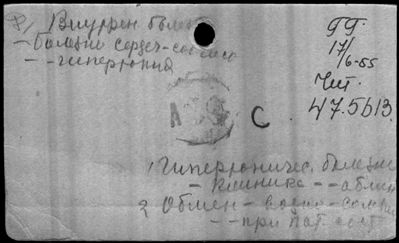 Внутрен. болез
- болезни сердеч-сосудис
- - гипертония
ГГ.
17/6-55
Чит.
47.5613
С.
1 Гипертоничес. болезни
- клиника - -
2 Обмен - водно-солев
- - при пат. сост